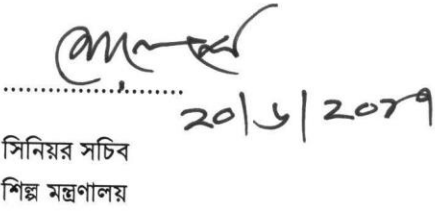 ২০/৬/২০১৭
সিনিয়র সচিব
শিল্প মন্ত্রণালয়